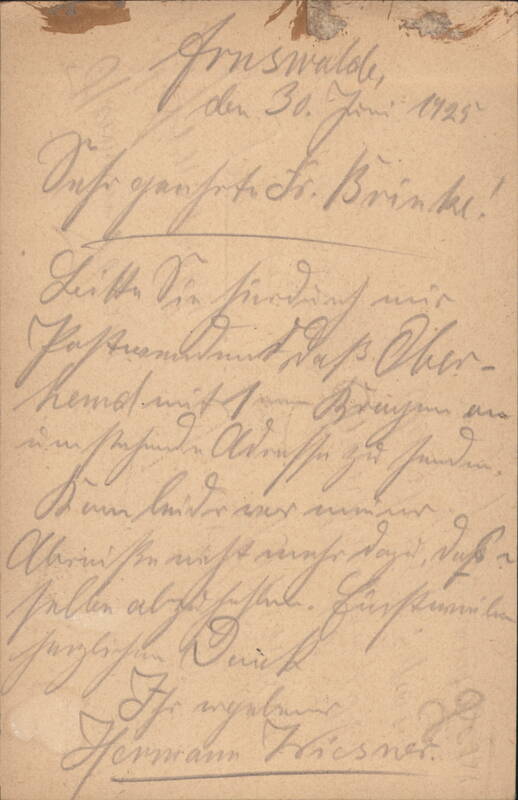 Arnswalde,
den 30. Juni 1925
Sehr geehrte Fr. Brinke!
Bitte Sie hierdurch mir
Postwendend, daß Ober-
hemd mit 1 Kragen an
umstehende Adresse zu senden.
Kam leider vor meiner
Abreise nicht mehr dazu, das-
selbe abzuholen. Einstweilen
herzlichen Dank
Ihr ergebener
Hermann Wiesner.